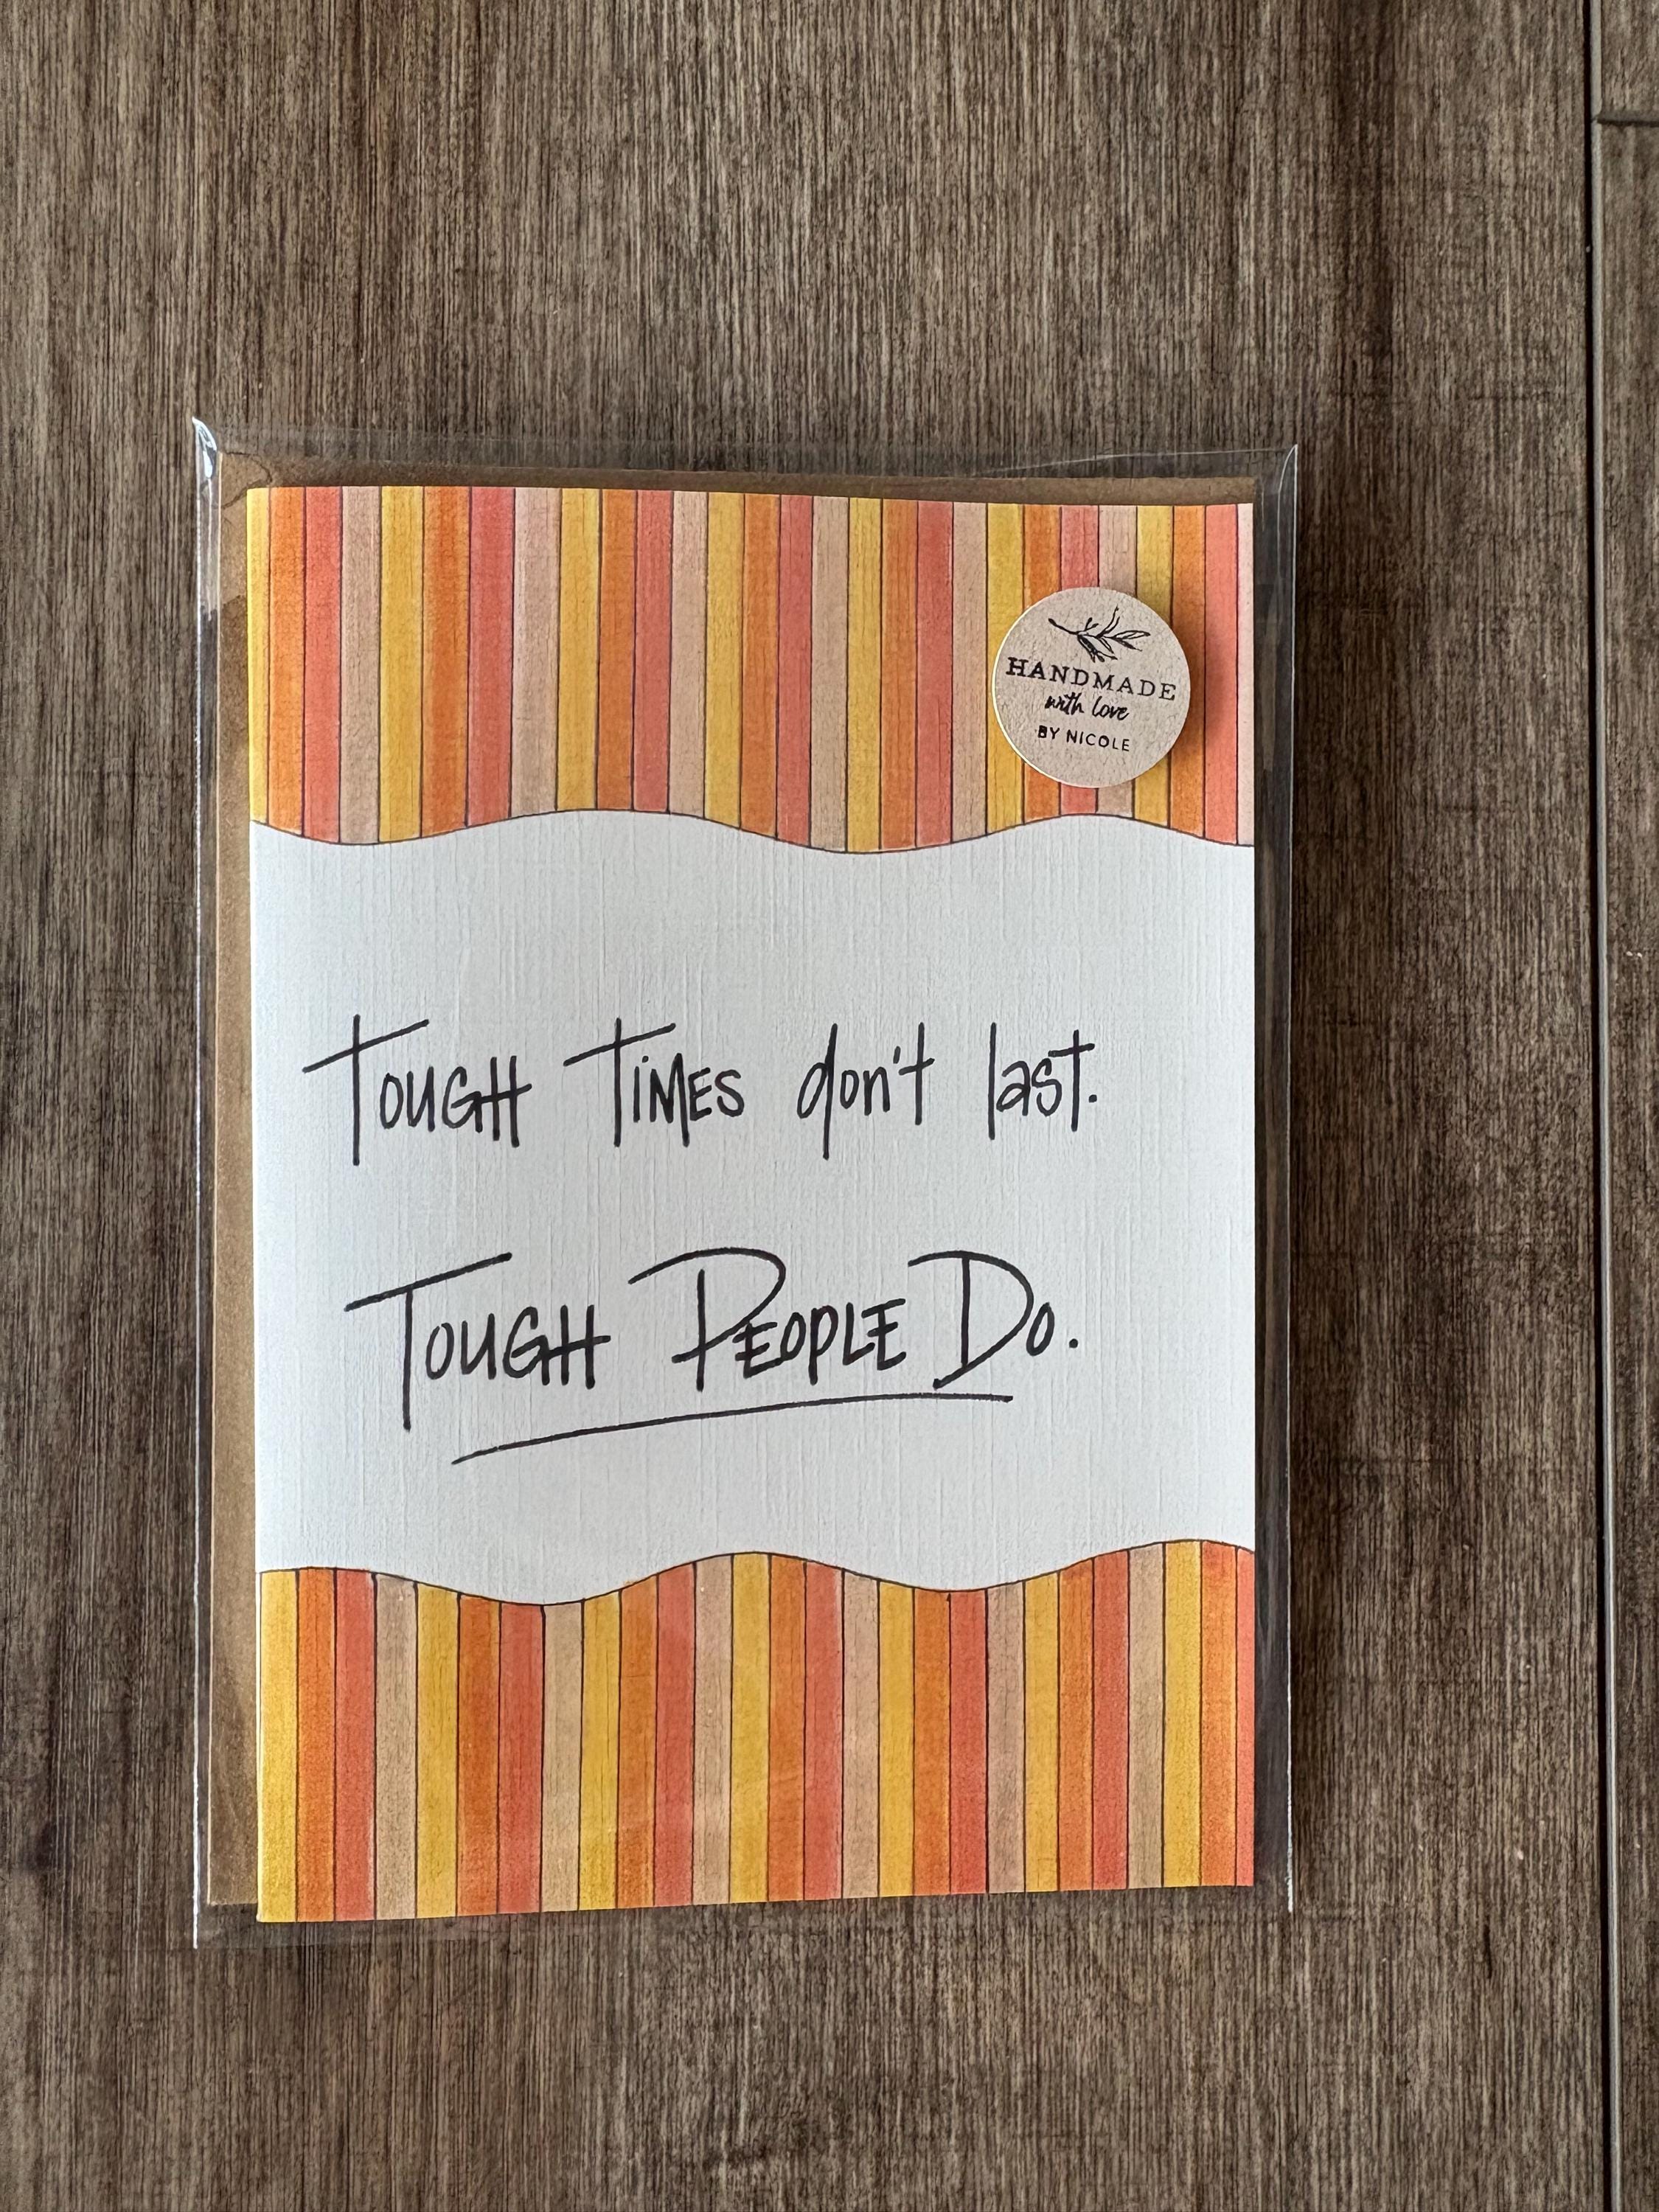 HANDMADE
with love
BY NICOLE
TOUGH TiMES don't last.
TOUGH PEOPLE DO.